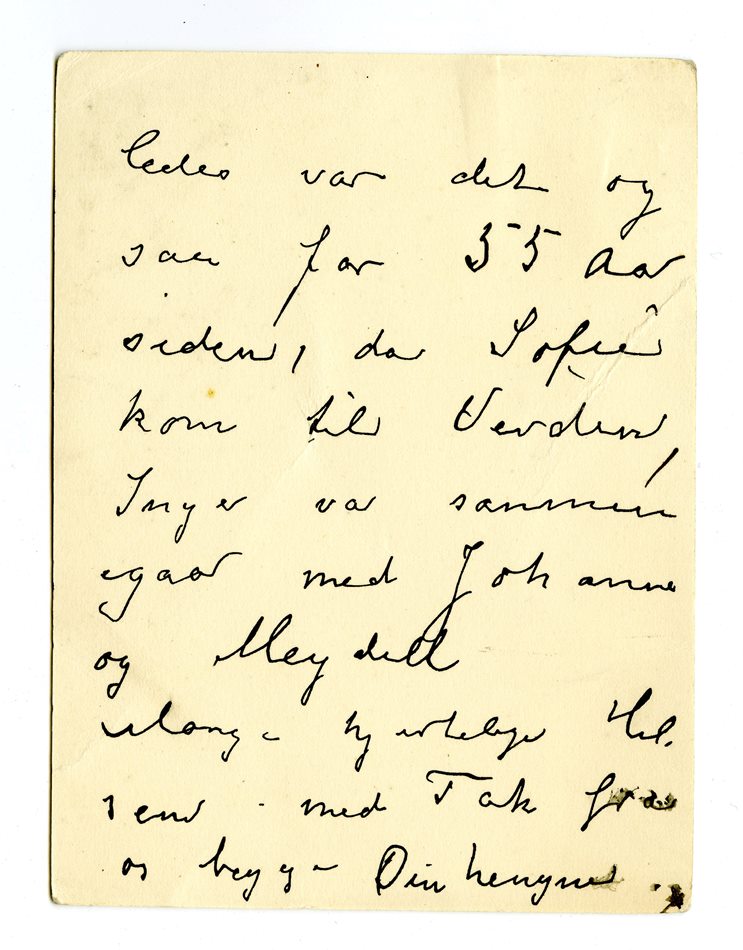 ledes var det og
saa for 55 Aar
siden, da Sofie
kom til Verden,
Inger var sammen
igaar med Johanne
og Meydell
Mange hjertelige Hil.
sener med Tak fra
os begge Din hengivne.